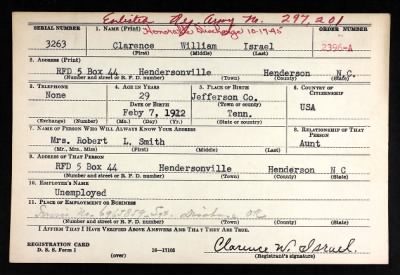 Enlisted Reg. Army No. 297,201
SERIAL NUMBER 1. NAME (Print) Honorable Discharge 10-19-45 ORDER NUMBER
3263 Clarence William Israel 2396-A
(First) (Middle) (Last)
2. ADDRESS (Print)
RFD 5 Box 44 Hendersonville Henderson N.C.
(Number and street or R. F. D. number) (Town) (County) (State)
3. TELEPHONE 4. AGE IN YEARS 5. PLACE OF BIRTH 6. COUNTRY OF CITIZENSHIP
None 29 Jefferson Co.
DATE OF BIRTH (Town or county) USA
Feby 7, 1912 Tenn.
(Exchange) (No.) (Mo.) (Day) (Yr.) (State or country)
7. NAME OF PERSON WHO WILL ALWAYS KNOW YOUR ADDRESS 8. RELATIONSHIP OF THAT PERSON
Mrs. Robert L. Smith Aunt
(Mr., Mrs., Miss) (First) (Middle) (Last)
9. ADDRESS OF THAT PERSON
RFD 5 Box 44 Hendersonville Henderson N C
(Number and street or R. F. D. number) (Town) (County) (State)
10. EMPLOYER'S NAME
Unemployed
11. PLACE OF EMPLOYMENT OR BUSINESS
(Number and street or R. F. D. number) (Town) (County) (State)
I AFFIRM THAT I HAVE VERIFIED ABOVE ANSWERS AND THAT THEY ARE TRUE.
REGISTRATION CARD
D. S. S. Form 1 16—17105 Clarence W. Israel
(Registrant's signature)